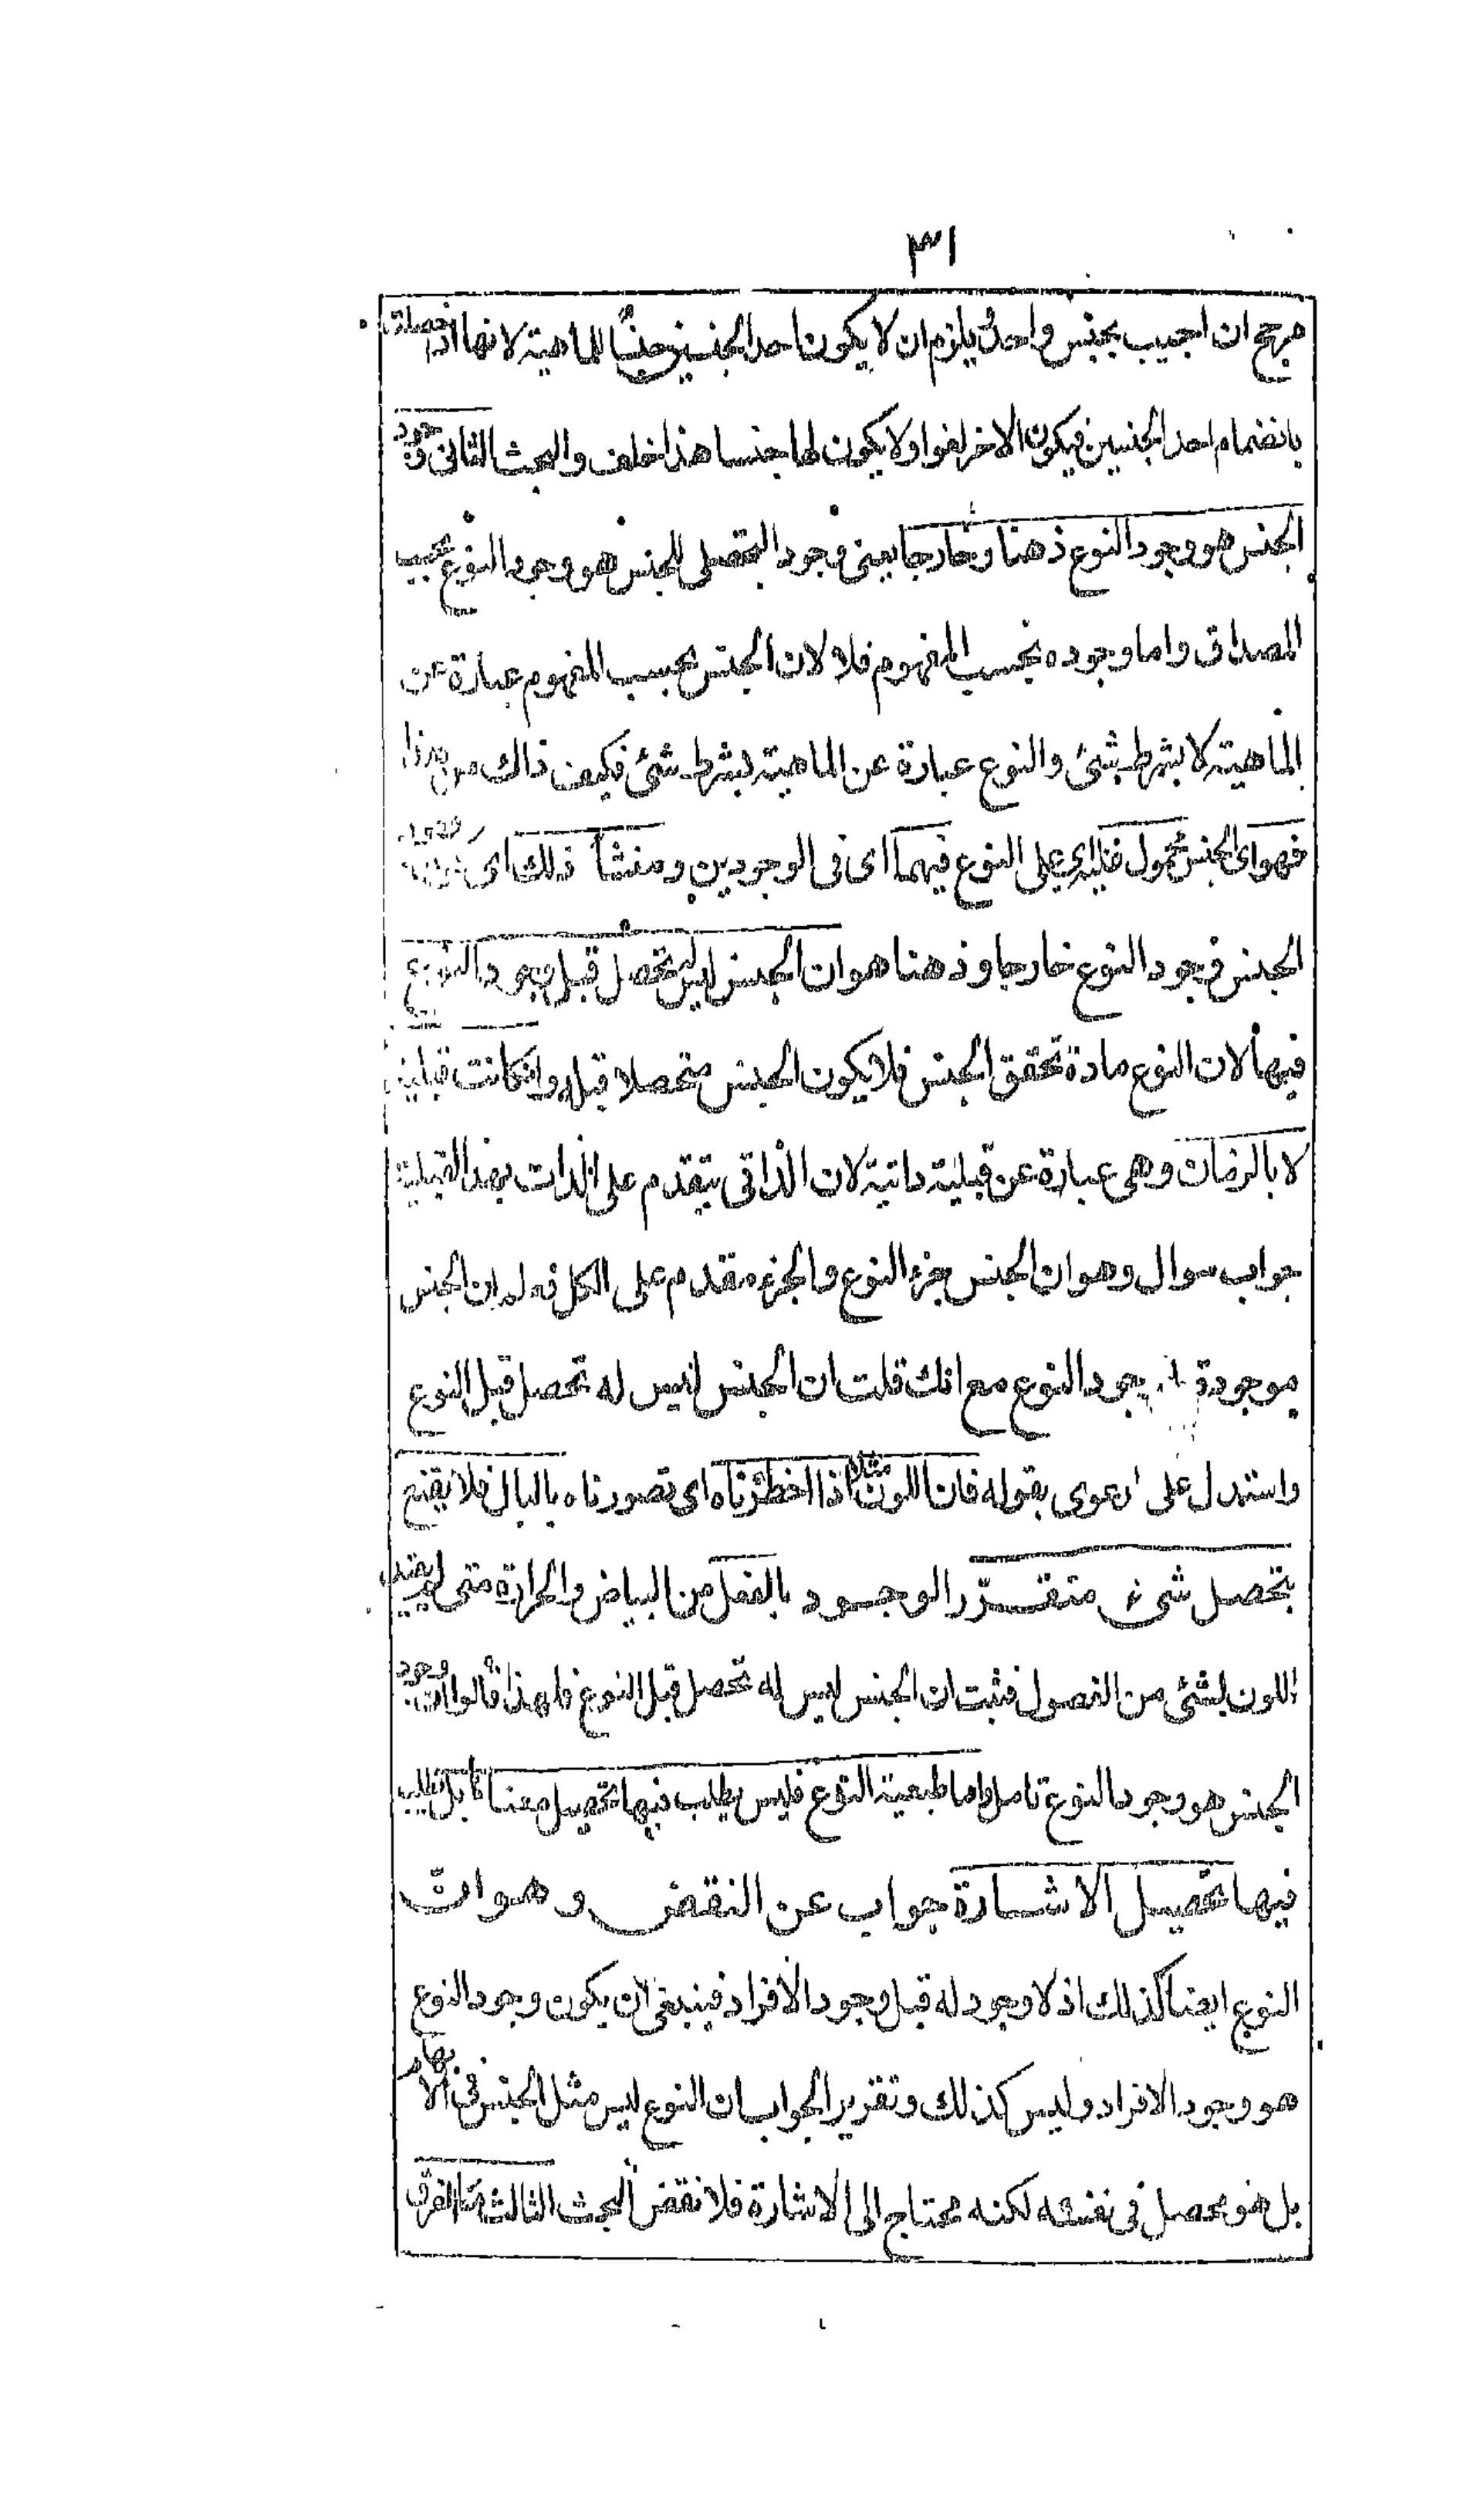 ٣١
مرجح ان اجيب بجنس واحد يلزم ان لا يكون احد الجنسين جنسًا للماهية لانها اذا حصلت
بانضمام احد الجنسين فيكون الاخر لغوا ولا يكون لها جنسا هذا خلف والبحث الثانى وجود
الجنس هو وجود النوع ذهنا وخارجا يعنى وجود التحصلى للجنس هو وجود النوع بحسب
المصداق واما وجوده بحسب المفهوم فلا لان الجنس بحسب المفهوم عبارة عن
الماهية لا بشرط شئ والنوع عبارة عن الماهية بشرط شئ فكيف ذاك من هذا
فهو اى الجنس محمول عليه اى على النوع فيهما اى فى الوجودين ومنشأ ذلك اى
الجنس وجود النوع خارجا وذهنا هو ان الجنس ليس له تحصل قبل وجود النوع
فيهما لان النوع مادة تحقق الجنس فلا يكون الجنس متحصلا قبله وان كانت قبلية
لا بالزمان وهى عبارة عن قبلية ذاتية لان الذاتى يتقدم على الذات بهذا القبلية
جواب سوال وهو ان الجنس جزء النوع والجزء مقدم على الكل فعلم ان الجنس
موجودة وجود النوع مع انك قلت ان الجنس ليس له تحصل قبل النوع
واستدل على دعوى بقوله فان اللون مثلا اذا اخطرناه اى تصورناه بالبال فلا يقنع
بتحصل شئ متقرّر الوجود بالفعل من البياض والحرارة متى لم يقيد
اللون بشئ من الفصول فثبت ان الجنس ليس له تحصل قبل النوع فلهذا قالوا ان وجود
الجنس هو وجود النوع تامل واما طبعية النوع فليس يطلب فيها تحصيل معناها بل يطلب
فيها تحصيل الاشارة جواب عن النقض وهو ان
النوع ايضا كذلك اذ لا وجود له قبل وجود الافراد فينبغى ان يكون وجود النوع
هو وجود الافراد وليس كذلك وتقرير الجواب ان النوع ليس مثل الجنس فى الابهام
بل هو محصل فى نفسه لكنه محتاج الى الاشارة فلا نقض البحث الثالث ما الفرق